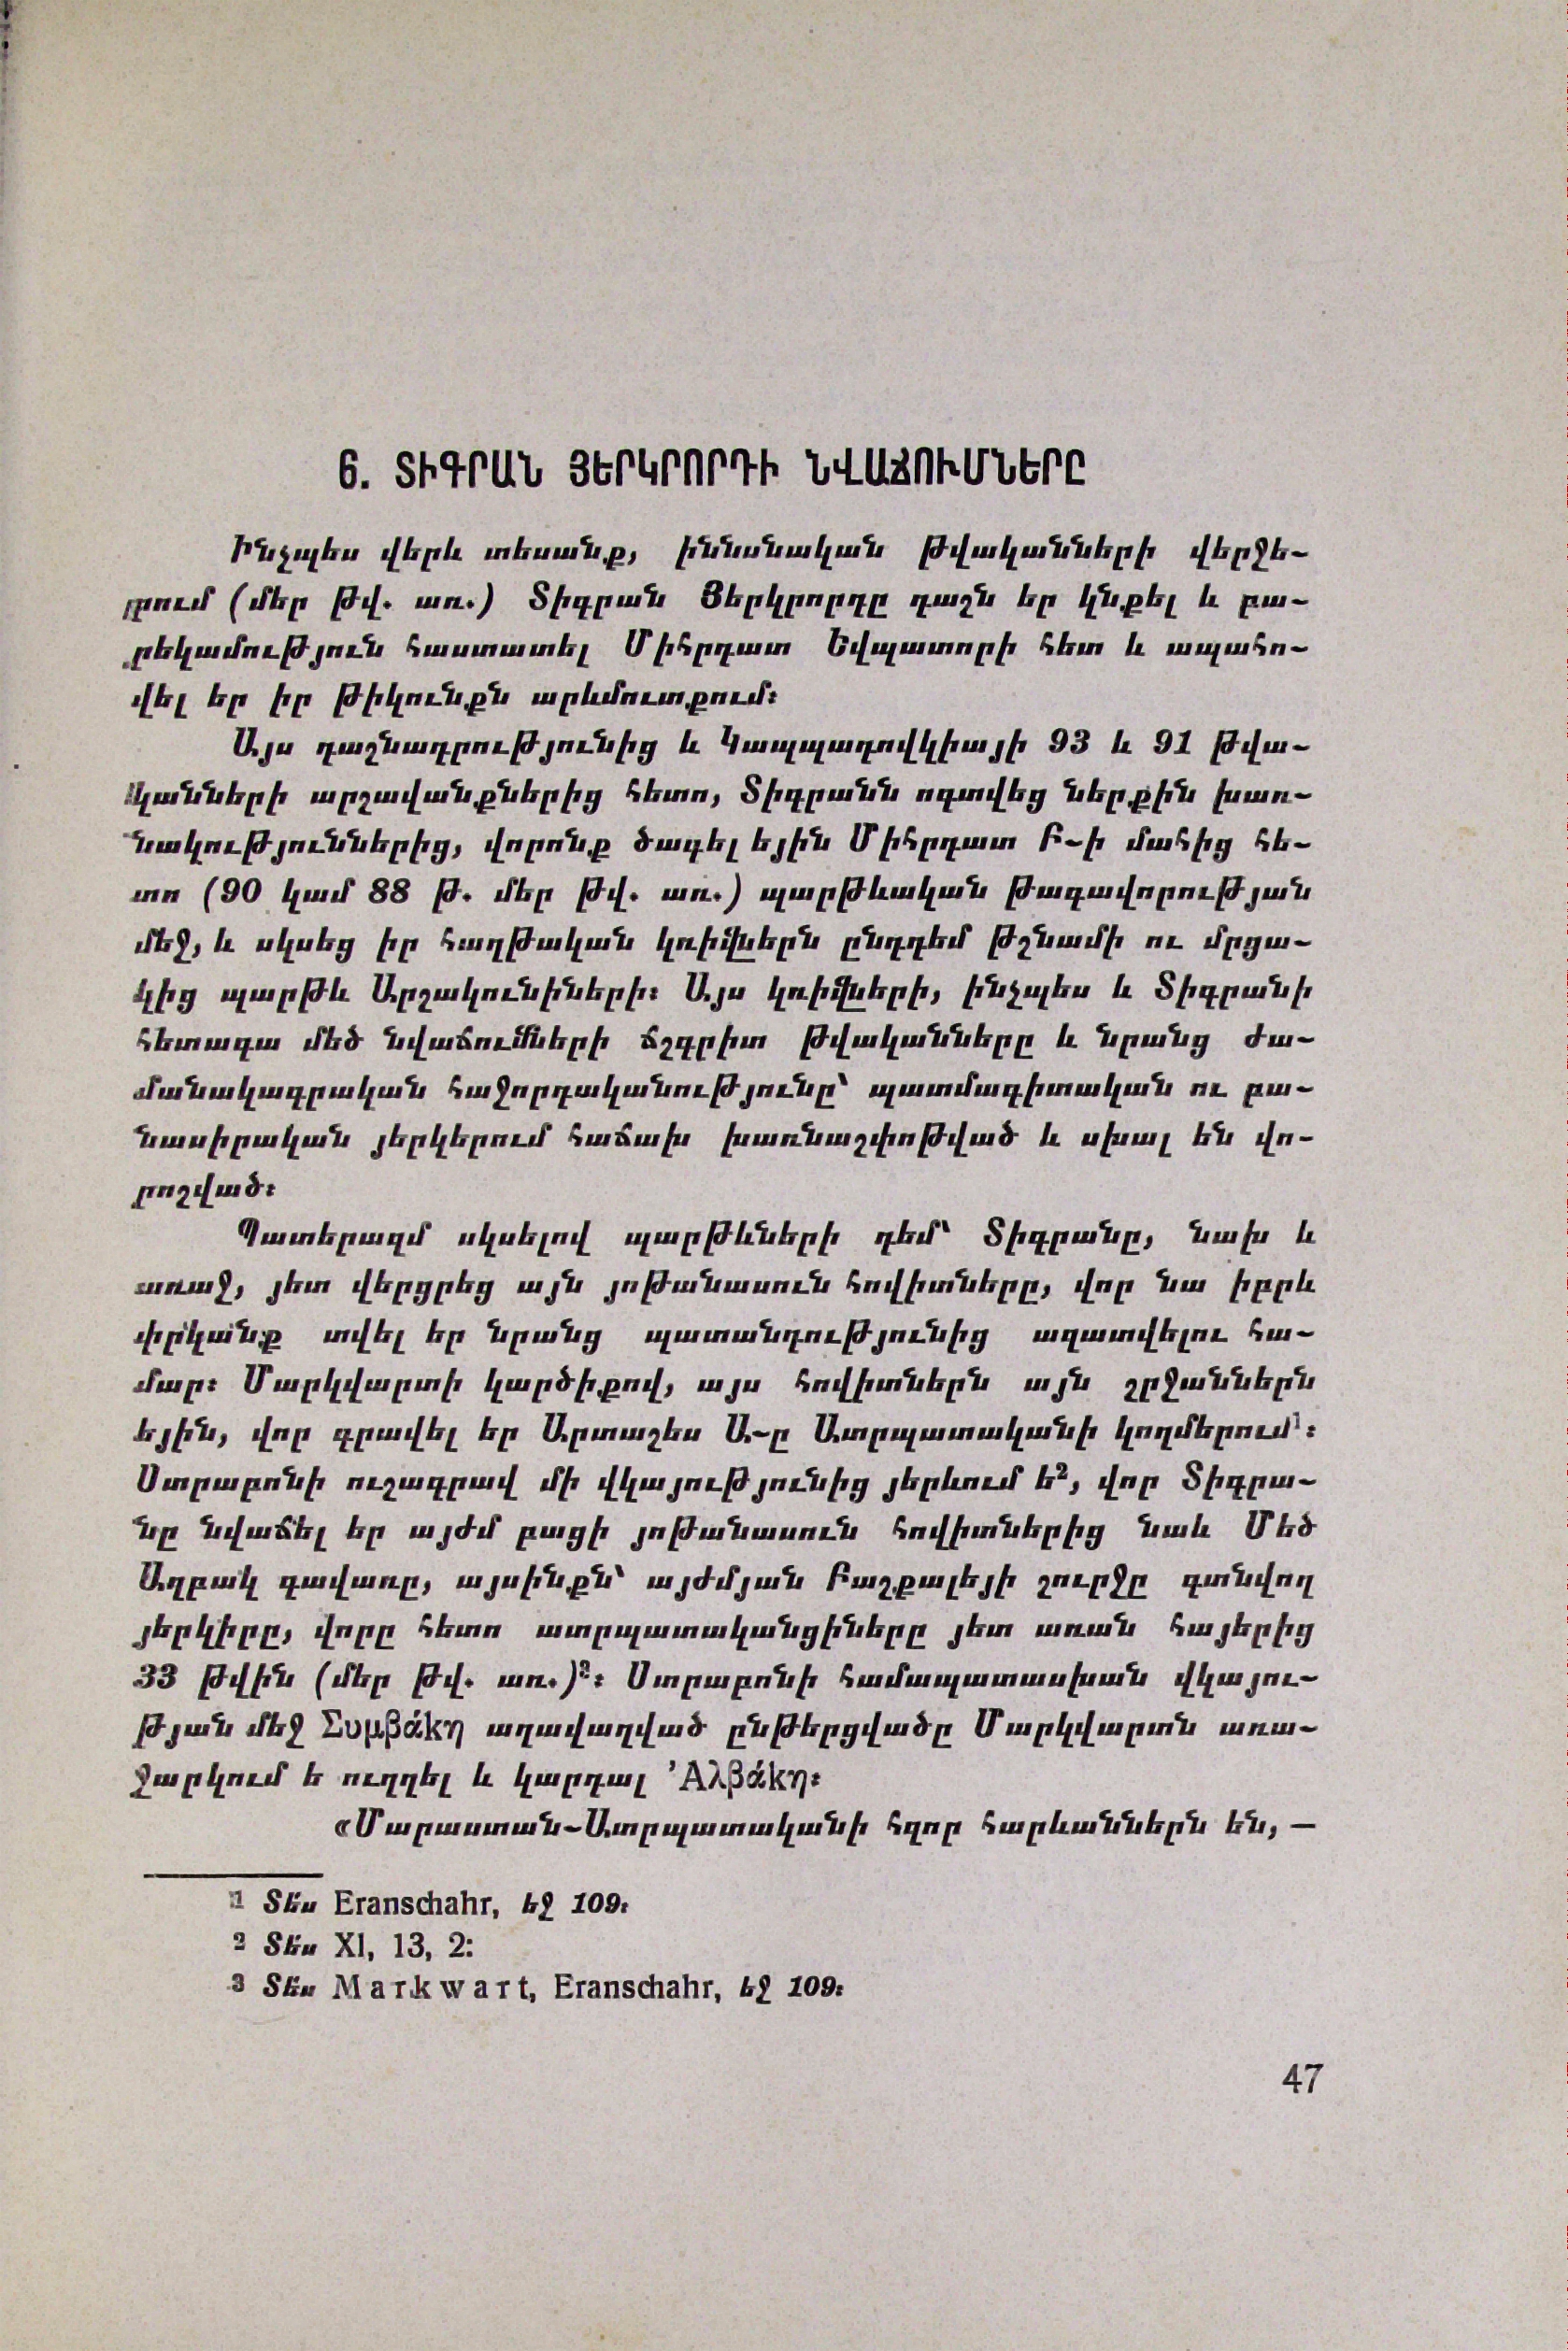 6. ՏԻԳՐԱՆ ՅԵՐԿՐՈՐԴԻ ՆՎԱՃՈՒՄՆԵՐԸ
Ինչպես վերև տեսանք, իննսնական թվականների վերջե-
րում (մեր թվ. առ.) Տիգրան Յերկրորդը դաշն եր կնքել և բա-
րեկամություն հաստատել Միհրդատ Եվպատորի հետ և ապահո-
վել եր իր թիկունքն արևմուտքում։
Այս դաշնադրությունից և Կապպադովկիայի 93 և 91 թվա-
կանների արշավանքներից հետո, Տիգրանն ոգտվեց ներքին խառ-
նակություններից, վորոնք ծագել եյին Միհրդատ Բ-ի մահից հե-
տո (90 կամ 88 թ. մեր թվ. առ.) պարթևական թագավորության
մեջ, և սկսեց իր հաղթական կռիվներն ընդդեմ թշնամի ու մրցա-
կից պարթև Արշակունիների։ Այս կռիվների, ինչպես և Տիգրանի
հետագա մեծ նվաճումների ճշգրիտ թվականները և նրանց ժա-
մանակագրական հաջորդականությունը՝ պատմագիտական ու բա-
նասիրական յերկերում հաճախ խառնաշփոթված և սխալ են վո-
րոշված։
Պատերազմ սկսելով պարթևների դեմ՝ Տիգրանը, նախ և
առաջ, յետ վերցրեց այն յոթանասուն հովիտները, վոր նա իբրև
փրկանք տվել եր նրանց պատանդությունից ազատվելու հա-
մար։ Մարկվարտի կարծիքով, այս հովիտներն այն շրջաններն
եյին, վոր գրավել եր Արտաշես Ա-ը Ատրպատականի կողմերում¹։
Ստրաբոնի ուշագրավ մի վկայությունից յերևում ե², վոր Տիգրա-
նը նվաճել եր այժմ բացի յոթանասուն հովիտներից նաև Մեծ
Աղբակ գավառը, այսինքն՝ այժմյան Բաշքալեյի շուրջը գտնվող
յերկիրը, վորը հետո ատրպատականցիները յետ առան հայերից
33 թվին (մեր թվ. առ.)²։ Ստրաբոնի համապատասխան վկայու-
թյան մեջ Συμβάκη աղավաղված ընթերցվածը Մարկվարտն առա-
ջարկում ե ուղղել և կարդալ ʼΑλβάκη։
«Մարաստան-Ատրպատականի հզոր հարևաններն են, —
¹ Տե՛ս Eranschahr, եջ 109։
² Տե՛ս XI, 13, 2:
³ Տե՛ս Markwart, Eranschahr, եջ 109։
47